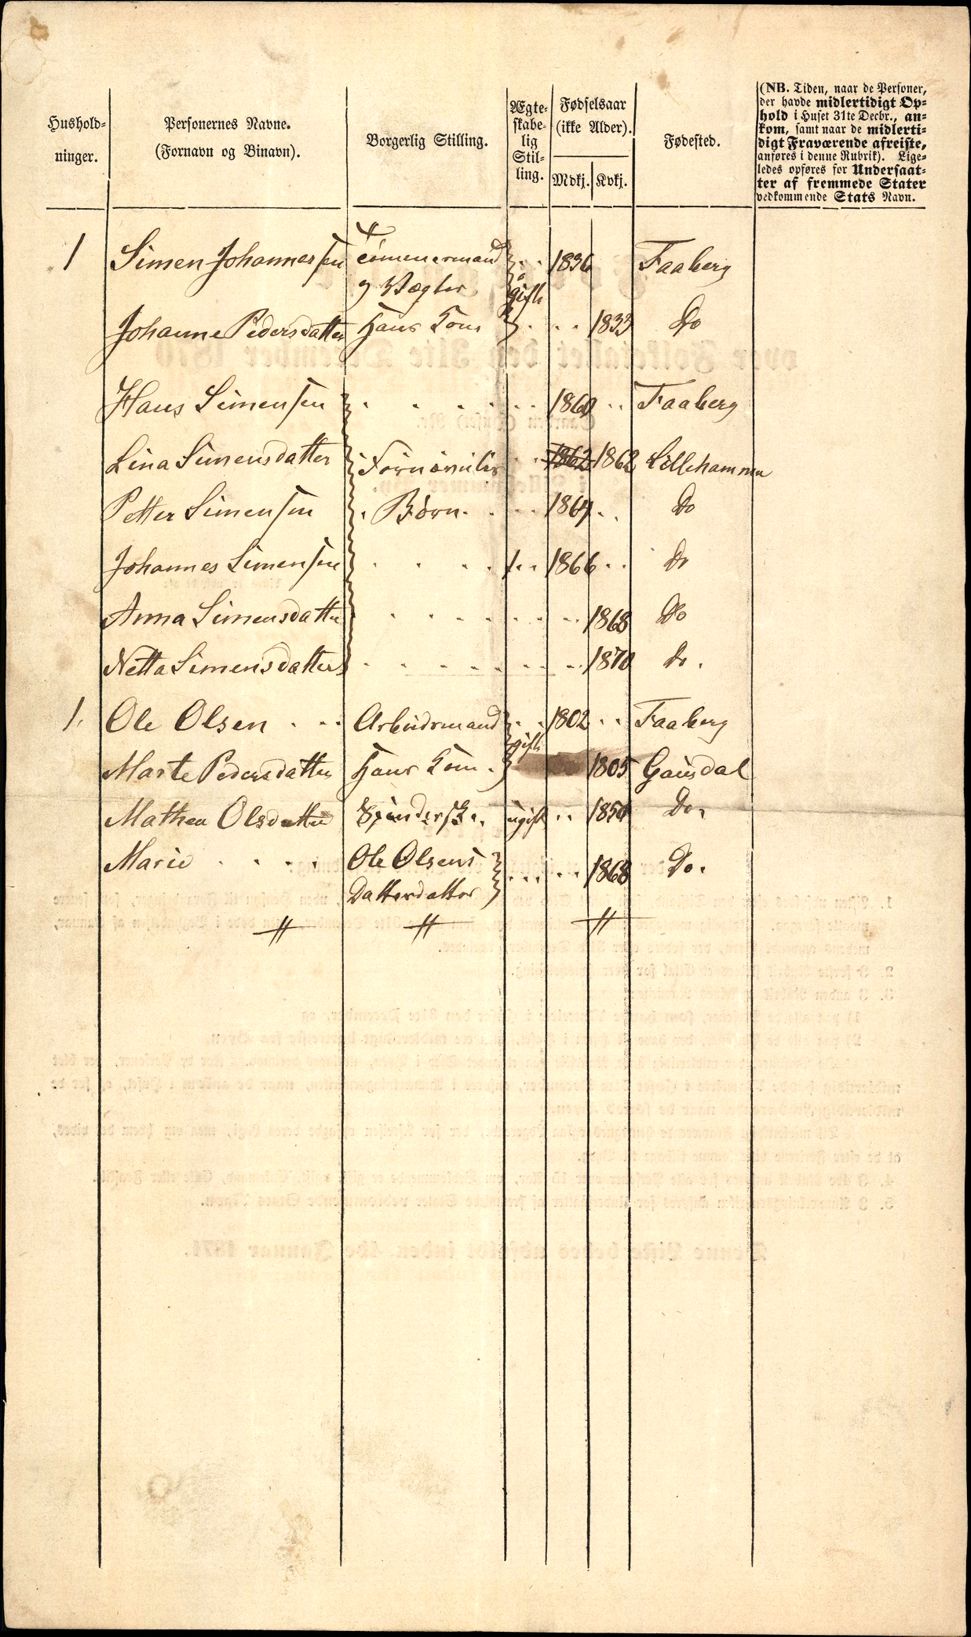 Hushold-
ninger.
Personernes Navne.
(Fornavn og Binavn).
Borgerlig Stilling.
Ægte-
skabe-
lig
Stil-
ling.
Fødselsaar
(ikke Alder).
Mdkj. Kvkj.
Fødested.
(NB. Tiden, naar de Personer,
der havde midlertidigt Op-
hold i Huset 31te Decbr., an-
kom, samt naar de midlerti-
digt Fraværende afreiste,
anføres i denne Rubrik). Lige-
ledes opføres for Undersaat-
ter af fremmede Stater
vedkommende Stats Navn.
1 Simen Johannessen Tömmermand 1836 Faaberg
og Vægter gift
Johanne Pedersdatter Hans Kone 1833 Do
Hans Simensen 1860 Faaberg
Lina Simensdatter 1862 1862 Lillehammer
Petter Simensen Børn 1864 Do
Johannes Simensen 1866 Do
Anna Simensdatter 1868 Do
Netta Simensdatter 1870 Do.
1. Ole Olsen Arbeidsmand 1802 Faaberg
gift
Marte Pedersdatter Hans Kone 1805 Gausdal
Mathea Olsdatter ugift Do.
Marie Ole Olsens 1868 Do.
Datterdatter